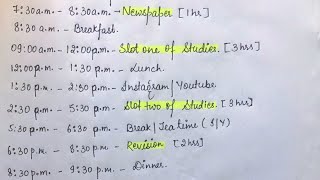 7:30a.m. - 8:30a.m. - Newspaper [1hr]
8:30 a.m. - Breakfast.
09:00a.m. - 12:00p.m. - Slot one of Studies. [3hrs]
12:00p.m. - 1:30 p.m. - Lunch.
1:30 p.m. - 2:30 p.m. - Instagram/Youtube.
2:30 p.m. - 5:30 p.m. - Slot two of Studies. [3hrs]
5:30 p.m. - 6:30 p.m. - Break/Tea time (I/Y)
6:30 p.m. - 8:30 p.m. - Revision [2hrs]
8:30 p.m. - 9:30 p.m. - Dinner.